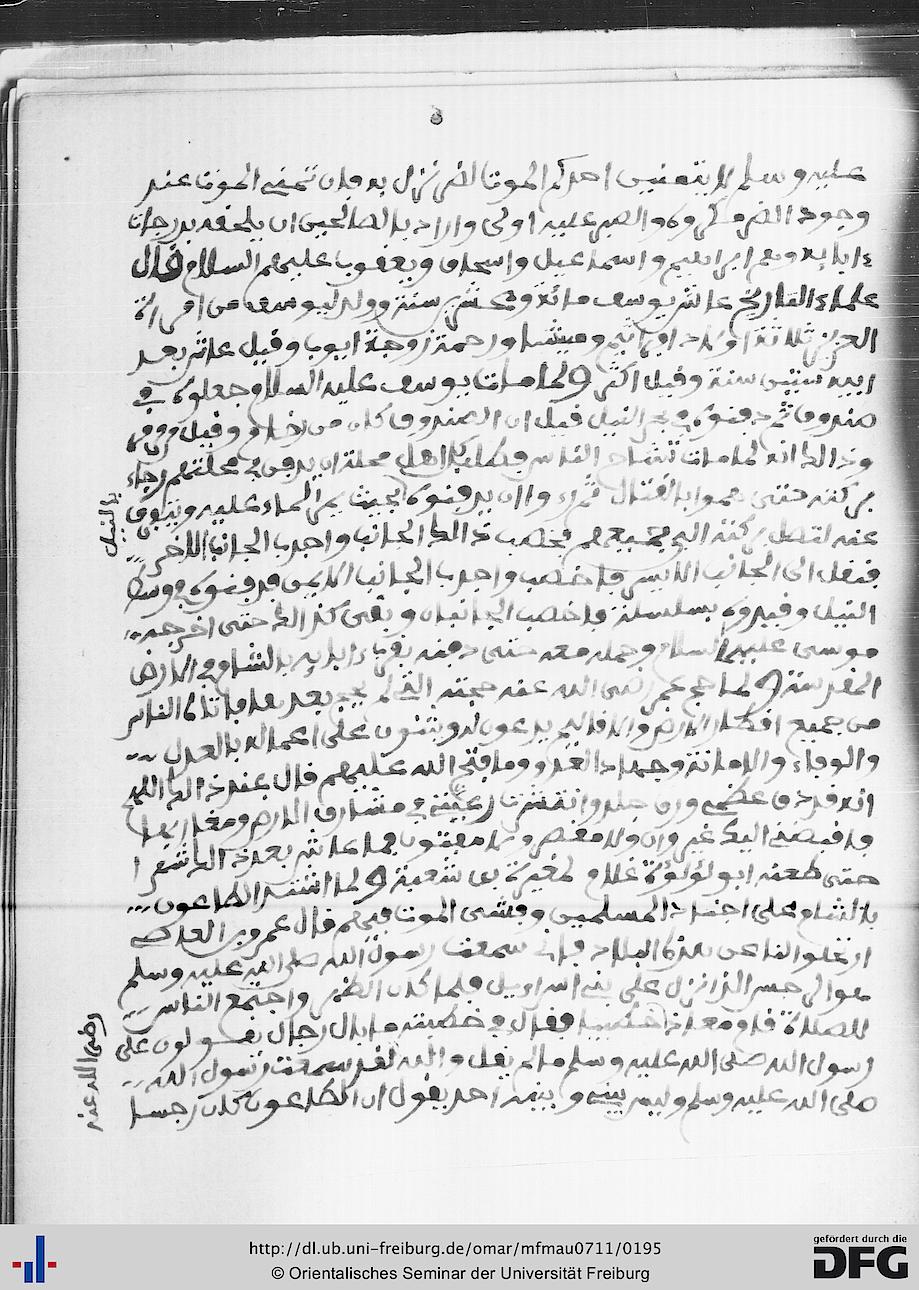 عليه وسلم لا يتمنين احدكم الموت لضر نزل به فان تمني الموت عند
وجود الضر مكروه والصبر عليه اولى واراد بالصالحين ان يلحقه بدرجات
ءابايه وهم ابراهيم واسماعيل واسحاق ويعقوب عليهم السلام قال
علماء التاريخ عاش يوسف مائة وعشرين سنة وولد ليوسف من امرأة
العزيز ثلاثة اولاد افراثيم وميشا ورحمة زوجة ايوب وقيل عاش بعد
ابيه ستين سنة وقيل اكثر ولما مات يوسف عليه السلام جعلوه في
صندوق ثم دفنوه في بحر النيل قيل ان الصندوق كان من رخام وقيل
وذالك انه لما مات تشاح الناس فطلب كل اهل محلة ان يدفن في محلتهم رجاء
بركته حتى هموا بالقتال ثم رءوا ان يدفنوه بحيث يمر الماء عليه ويتفرق
بالنيل
عنه لتصل بركته الى جميعهم فخصب ذالك الجانب واجدب الجانب الاخر
فنقل الى الجانب الايسر فاخصب واجدب الجانب الايمن فدفنوه في وسط
النيل وقيدوه بسلسلة فاخصب الجانبان وبقي كذالك حتى اخرجه
موسى عليه السلام وحمله معه حتى دفنه بقرب ءابايه بالشام في الارض
المقدسة ولما حج عمر رضي الله عنه حجته التي لم يحج بعدها فاتاه الناس
من جميع اقطار الارض والاقاليم يدعون له ويثنون على اعماله بالعدل
والوفاء والامانة وجهاد العدو وما فتح الله عليهم قال عند ذالك اللهم
انه قد دق عظمي ورق جلدي وانتشرت رعيتي في مشارق الارض ومغاربها
فاقبضني اليك غير وان ولا مقصر ولا مفتون فما عاش بعد ذالك شهرا
حتى طعنه ابو لؤلؤة غلام لمغيرة بن شعبة ولما اشتد الطاعون
بالشام على اجناد المسلمين وفشى الموت فيهم قال عمرو بن العاص
ارتحلوا بنا عن هذه البلاد فاني سمعت رسول الله صلى الله عليه وسلم
هو الرجس الذي نزل على بني اسراءيل فلما كان الظهر واجتمع الناس
للصلاة قام معاذ خطيبا فقال في خطبته ما بال رجال يقولون على
رضي الله عنه
رسول الله صلى الله عليه وسلم ما لم يقل والله لقد سمعت رسول الله
صلى الله عليه وسلم وليس بيني وبينه احد يقول ان الطاعون كان رجسا
http://dl.ub.uni-freiburg.de/omar/mfmau0711/0195
© Orientalisches Seminar der Universität Freiburg
gefördert durch die
DFG